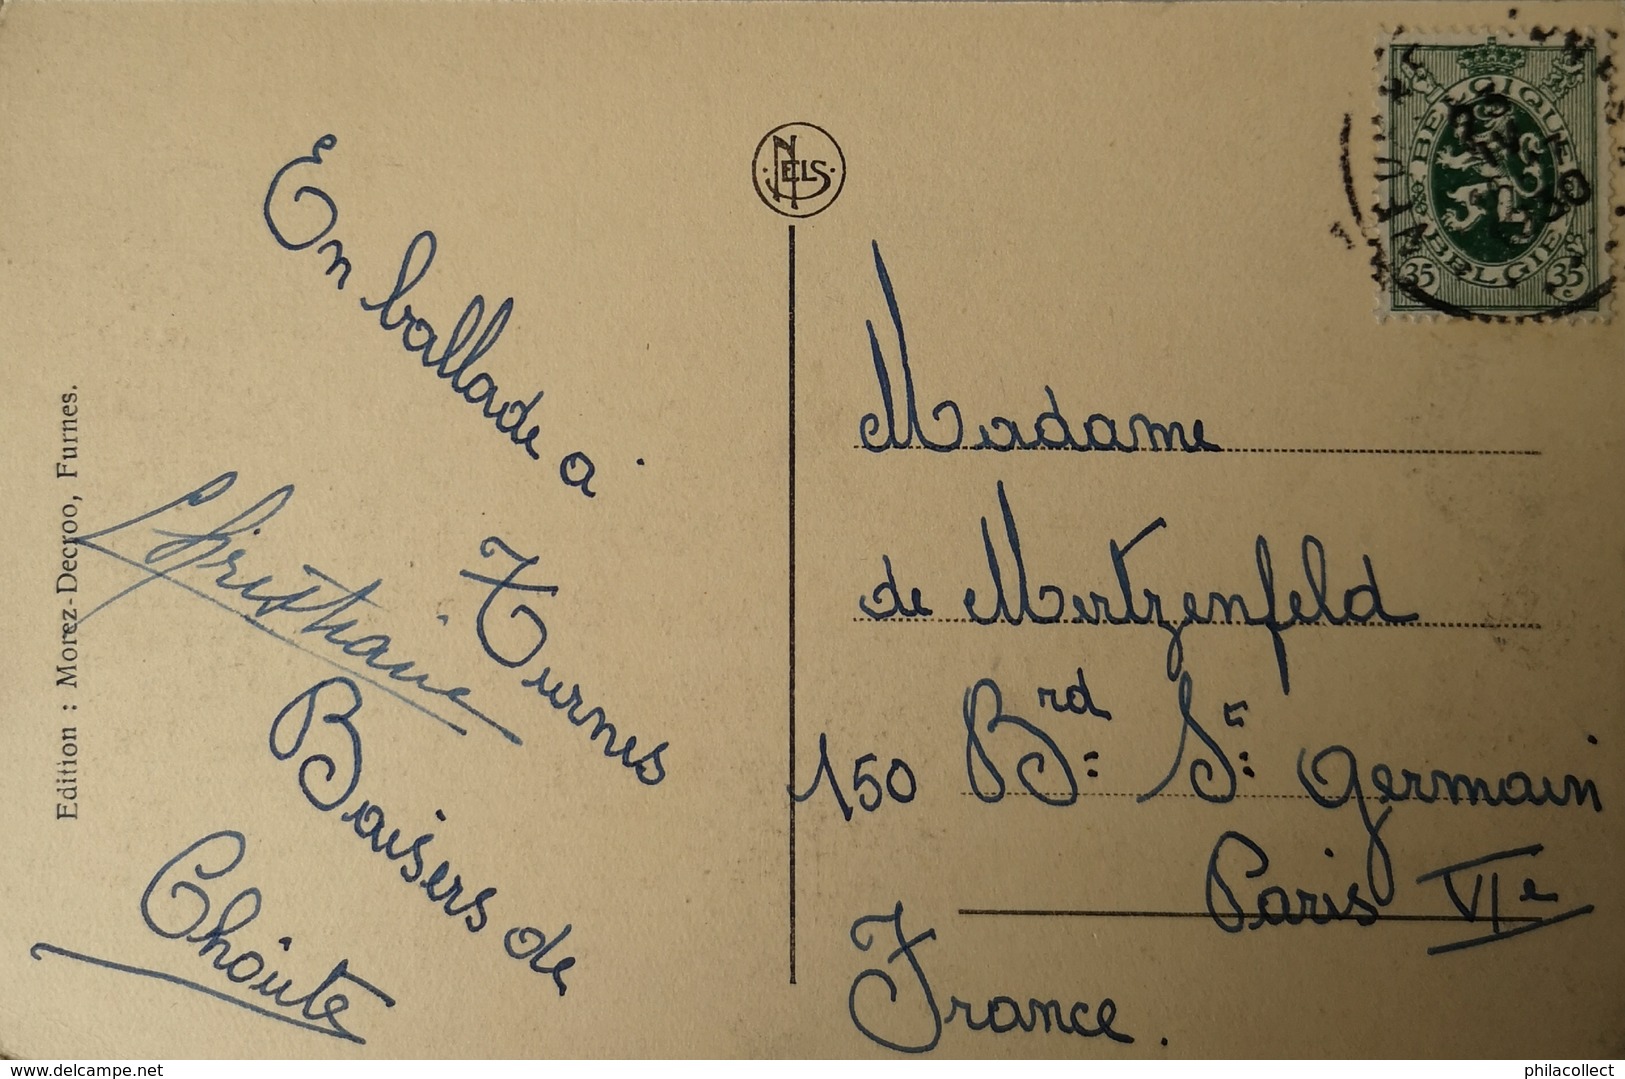 En ballade à
Furnes
Christiane
Baisers de
Choute
Edition : Morez-Decroo, Furnes.
NELS
BELGIQUE
BELGIE
35 35
c
Madame
de Mertzenfeld
150 Brd: St: Germain
Paris VIe
France.
delcampe.net
philacollect